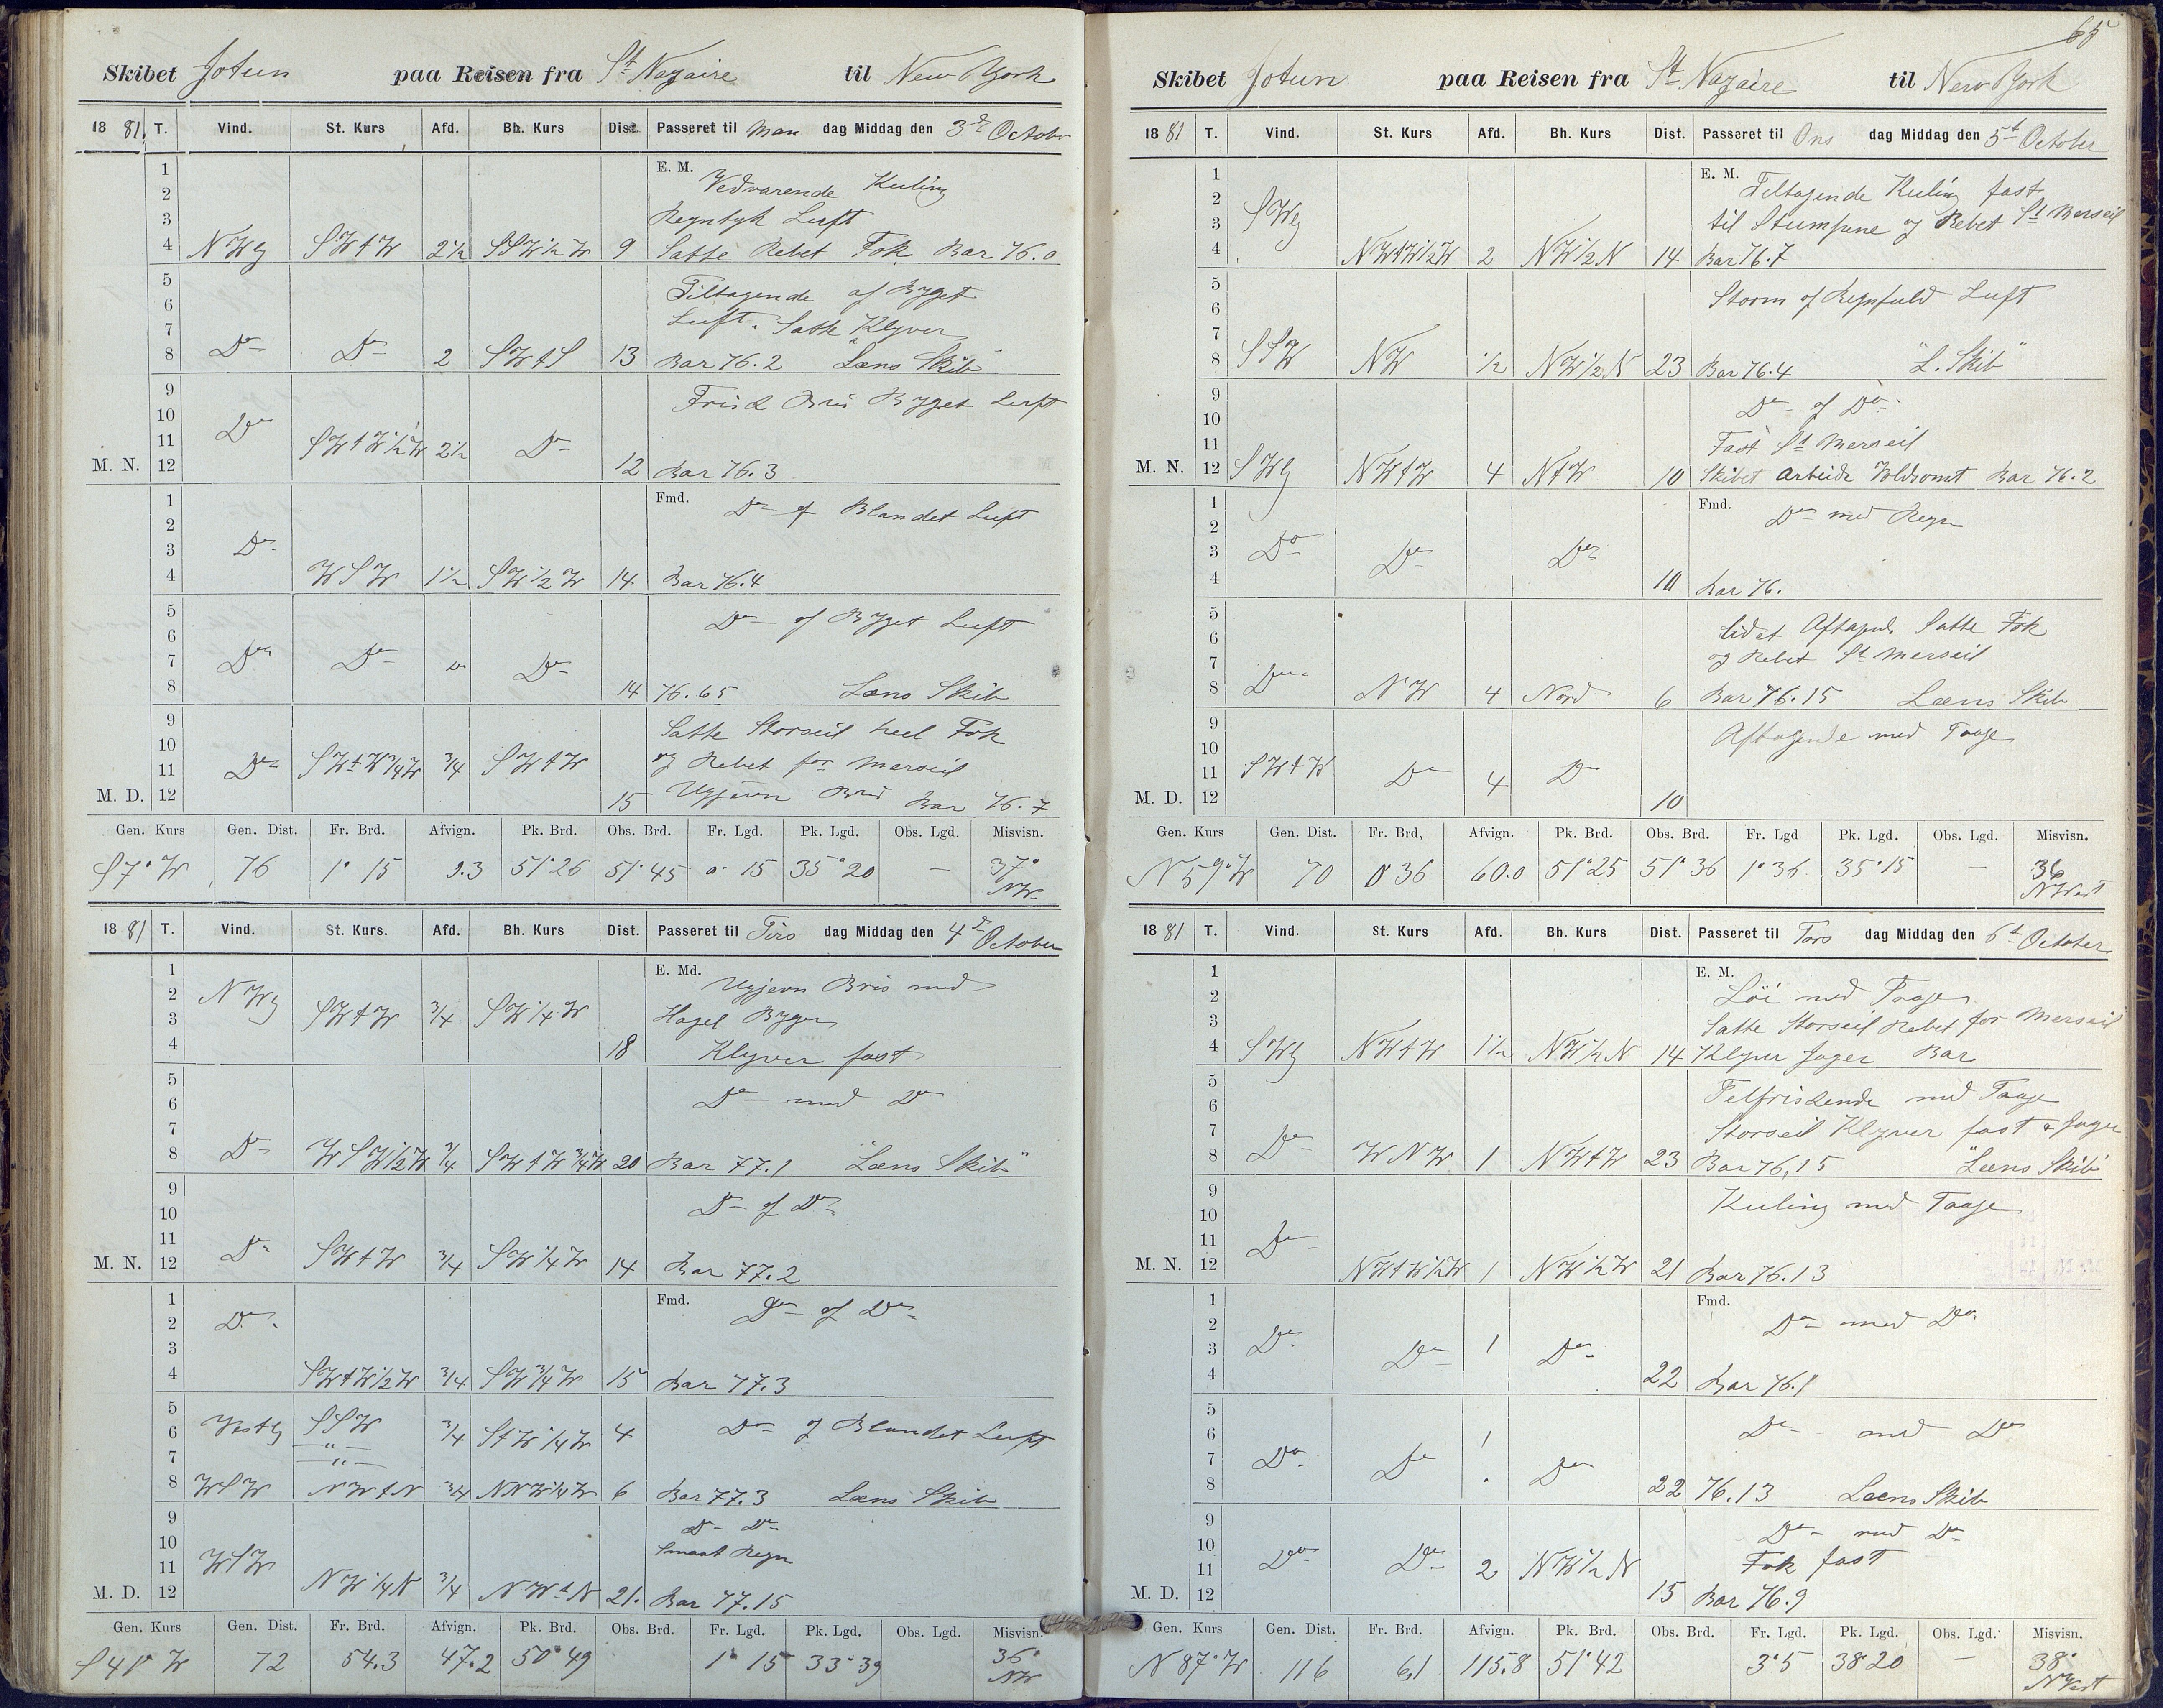 Skibet Jotun paa Reisen fra St Nazaire til New York
18 81. T. Vind. St. Kurs Afd. Bh. Kurs Dist. Passeret til Man dag Middag den 3d October
1 E. M. Vedvarende Kuling
2
3 Regntyk Luft
4 NWg SWtW 2½ SSW½W 9 Satte Rebet Fok Bar 76.0
5 Tiltagende af Byget
6
7 Luft. Satte Klyver
8 Do Do 2 SWtS 13 Bar 76.2 "Læns Skib"
9 Frisk Bris Byget Luft
10 Do
11 SWtW½W 2½ Do
M. N. 12 12 Bar 76.3
1 Fmd. Do og Blandet Luft
2
3 Do
4 WSW 1½ SW½W 14 Bar 76.4
5 Do og Byget Luft
6
7 Do Do Do
8 14 76.65 Læns Skib
9 Satte Storseil heel Fok
10 og Rebet for Merseil
11 Do SWtW¾W ¾ SWtW
M. D. 12 15 Ugjevn Bris Bar 76.7
Gen. Kurs Gen. Dist. Fr. Brd. Afvign. Pk. Brd. Obs. Brd. Fr. Lgd. Pk. Lgd. Obs. Lgd. Misvisn.
S7°W 76 1° 15 9.3 51°26 51°45 0° 15 35°20 — 37° NW
18 81 T. Vind. St. Kurs. Afd. Bh. Kurs Dist. Passeret til Tirs dag Middag den 4d October
1 E. Md. Ugjevn Bris med
2 NWg
3 SWtW ¾ SW¼W Hagel Byger
4 18 Klyver fast
5
6 Do med Do
7
8 Do WSW½W ¾ SWtW¾W 20 Bar 77.1 "Læns Skib"
9
10 Do og Do
11
M. N. 12 Do SWtW ¾ SW¼W 14 Bar 77.2
1 Fmd. Do og Do
2 Do
3
4 SWtW½W ¾ SW¾W 15 Bar 77.3
5
6 Vestlg SSW ¾ StW¼W 4 Do og Blandet Luft
7 — " —
8 WSW NWtN ¾ NNW¼W 6 Bar 77.3 Læns Skib
9 Do Do
10 Smaat Regn
11 WSW
M. D. 12 NW¼N ¾ NWtN 21. Bar 77.15
Gen. Kurs Gen. Dist. Fr. Brd. Afvign. Pk. Brd. Obs. Brd. Fr. Lgd. Pk. Lgd. Obs. Lgd. Misvisn.
S41°W 72 54.3 47.2 50°49 1° 15 33°39 36° NW
65
Skibet Jotun paa Reisen fra St Nazaire til New York
18 81 T. Vind. St. Kurs Afd. Bh. Kurs Dist. Passeret til Ons dag Middag den 5t October
1 E. M. Tiltagende Kuling fast
2 SWg
3 til Stumpene og Rebet St Merseil
4 NWtW½W 2 NW½N 14 Bar 76.7
5 Storm og Regnfuld Luft
6
7
8 SSW NW ½ NW½N 23 Bar 76.4 "L. Skib"
9 Do og Do
10
11 Fast St Merseil
M. N. 12 SWg NWtW 4 NtW 10 Skibet Arbeide Voldsomt Bar 76.2
1 Fmd. Do med Regn
2
3 Do Do Do
4 10 Bar 76.
5
6 lidet Aftagende Satte Fok
7 og Rebet St Merseil
8 Do NW 4 Nord 6 Bar 76.15 Læens Skib
9 Aftagende med Taage
10
11 SWtW Do 4 Do
M. D. 12 10
Gen. Kurs Gen. Dist. Fr. Brd, Afvign. Pk. Brd. Obs. Brd. Fr. Lgd Pk. Lgd. Obs. Lgd. Misvisn.
N59°W 70 0°36 60.0 51°25 51°36 1°36 35°15 — 36 NWest
18 81 T. Vind. St. Kurs Afd. Bh. Kurs Dist. Passeret til Tors dag Middag den 6t October
1 E. M.
2 Löi med Taage
3 Satte Storseil Rebet for Merseil
4 SWg NWtW 1½ NW½N 14 Klyver Jager Bar
5 Telfriskende med Taage
6
7 Storseil Klyver fast & Jager
8 Do WNW 1 NWtW 23 Bar 76,15 "Læens Skib"
9 Kuling med Taage
10
11 Do
M. N. 12 NWtW½W 1 NW½W 21 Bar 76.13
1 Fmd.
2 Do med Do
3 Do Do 1 Do
4 22 Bar 76.1
5
6 1 Do med Do
7 Do Do Do
8 22 76.13 Læens Skib
9 Do med Do
10
11 Do Do 2 NW½N Fok fast
M. D. 12 15 Bar 76.9
Gen. Kurs Gen. Dist. Fr. Brd. Afvign. Pk. Brd. Obs. Brd. Fr. Lgd. Pk. Lgd. Obs. Lgd. Misvisn.
N87°W 116 6,1 115.8 51°42 3°5 38°20 — 38° NWest